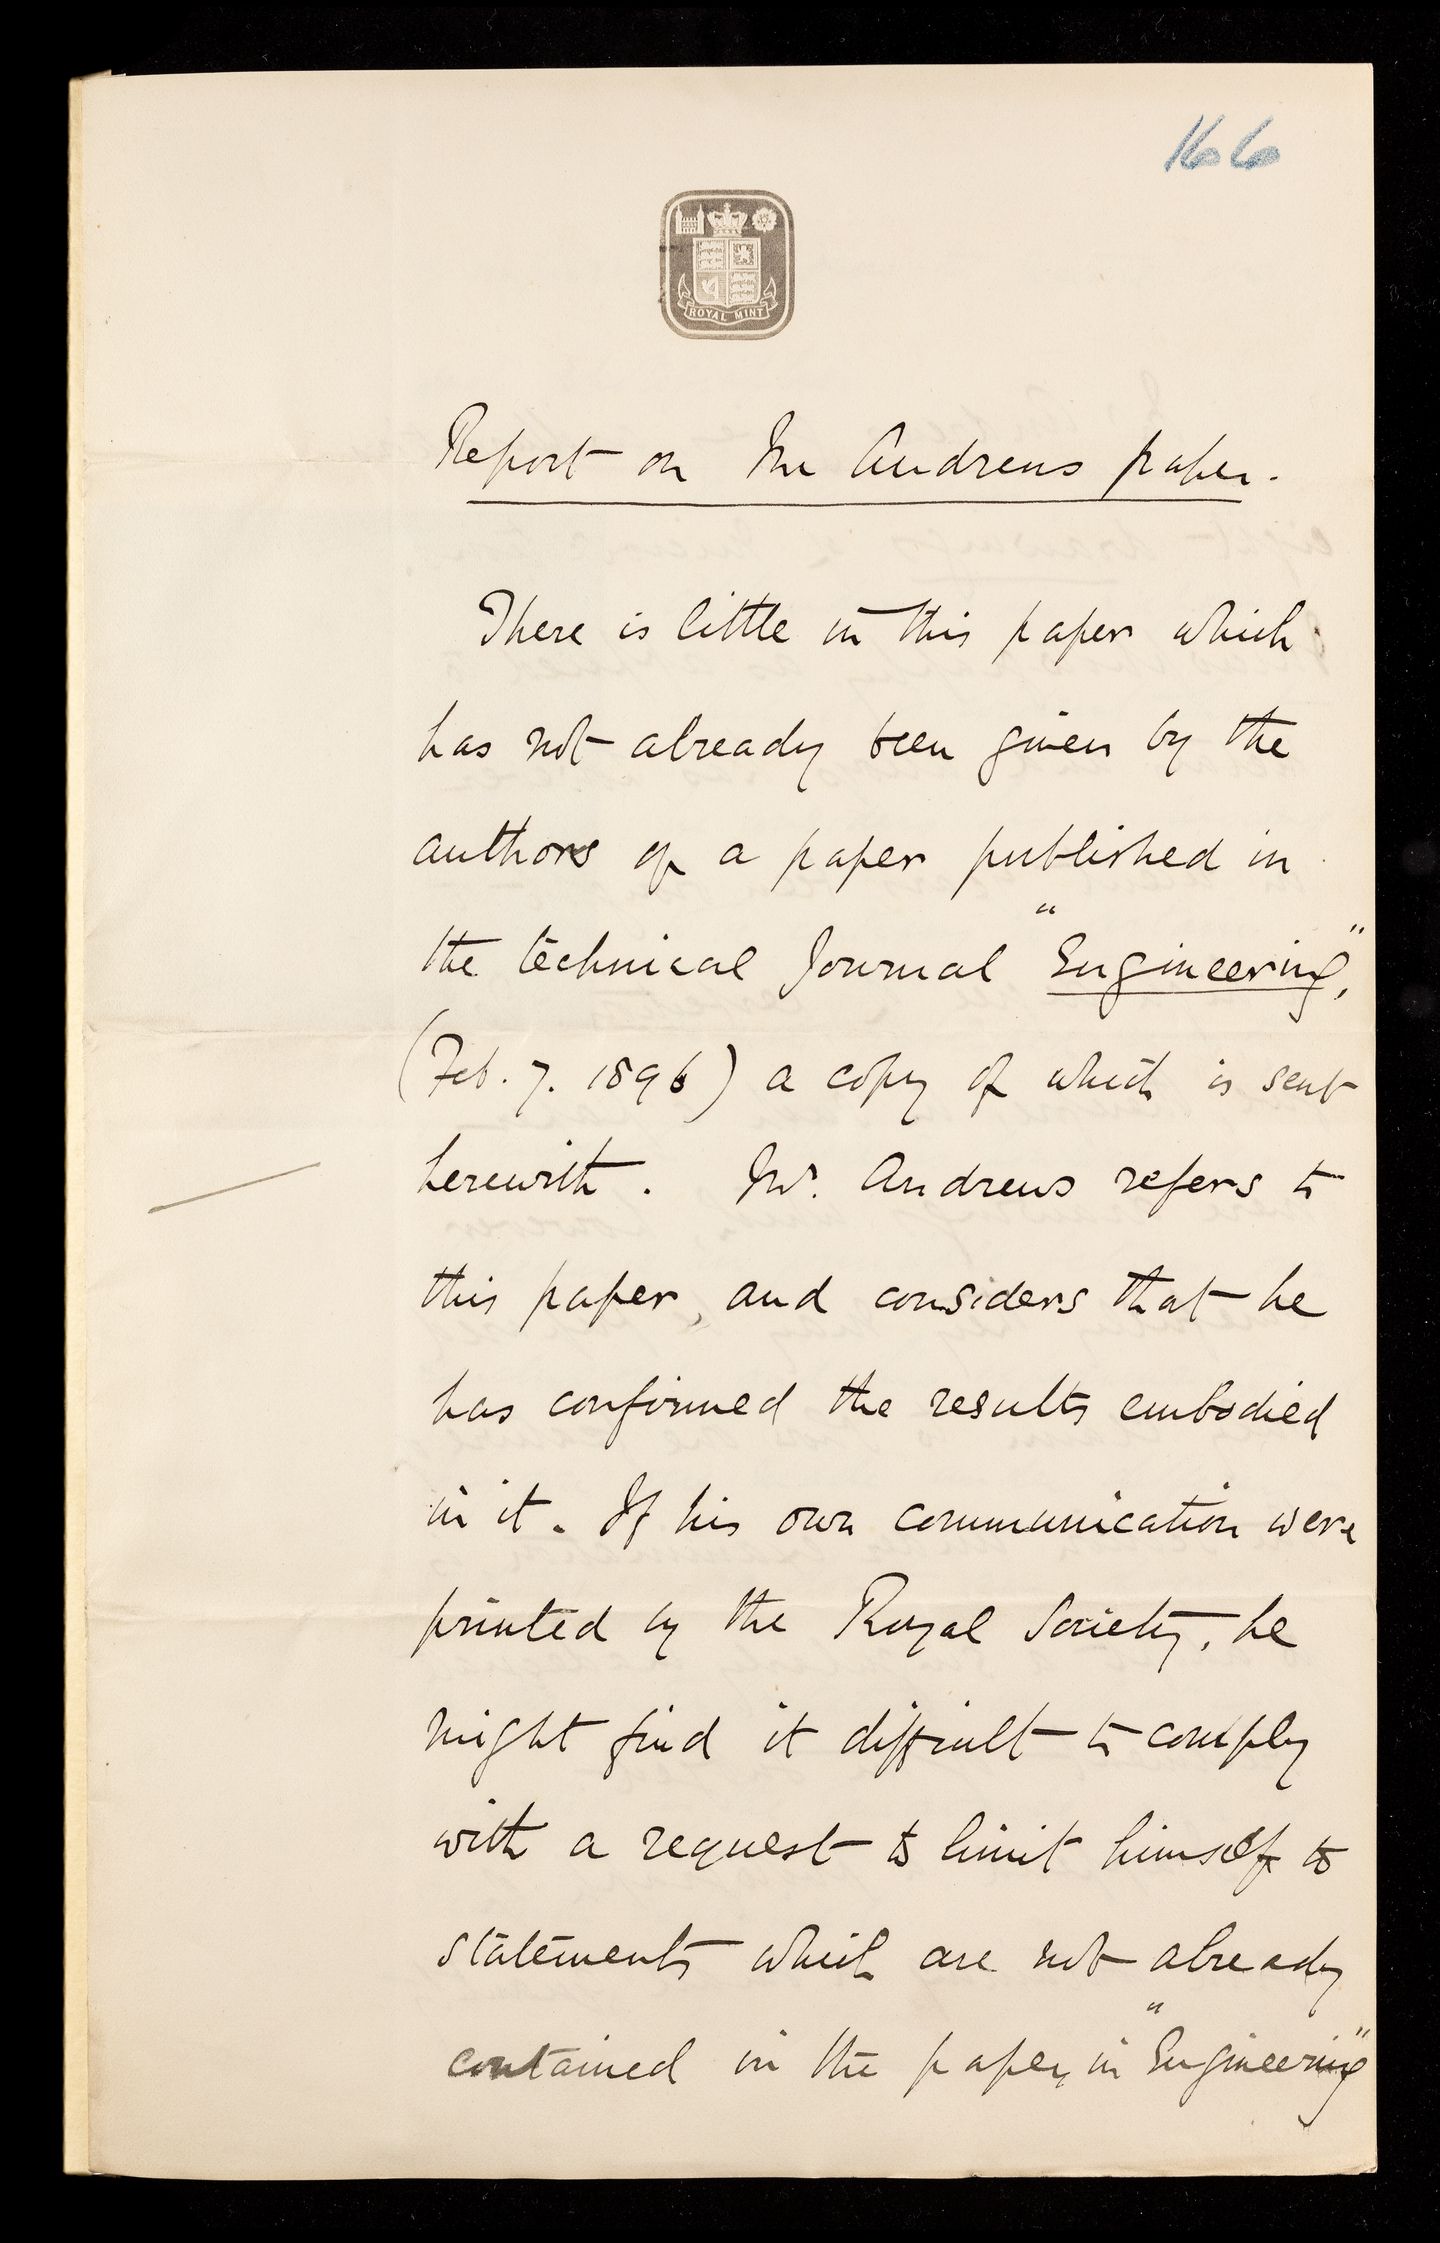 166
ROYAL MINT
Report on Mr Andrews paper.
There is little in this paper which
has not already been given by the
authors of a paper published in
the technical Journal "Engineering",
(Feb. 7. 1896) a copy of which is sent
herewith. Mr. Andrews refers to
this paper, and considers that he
has confirmed the results embodied
in it. If his own communication were
printed by the Royal Society, he
might find it difficult to comply
with a request to limit himself to
statements which are not already
contained in the paper, in "Engineering"